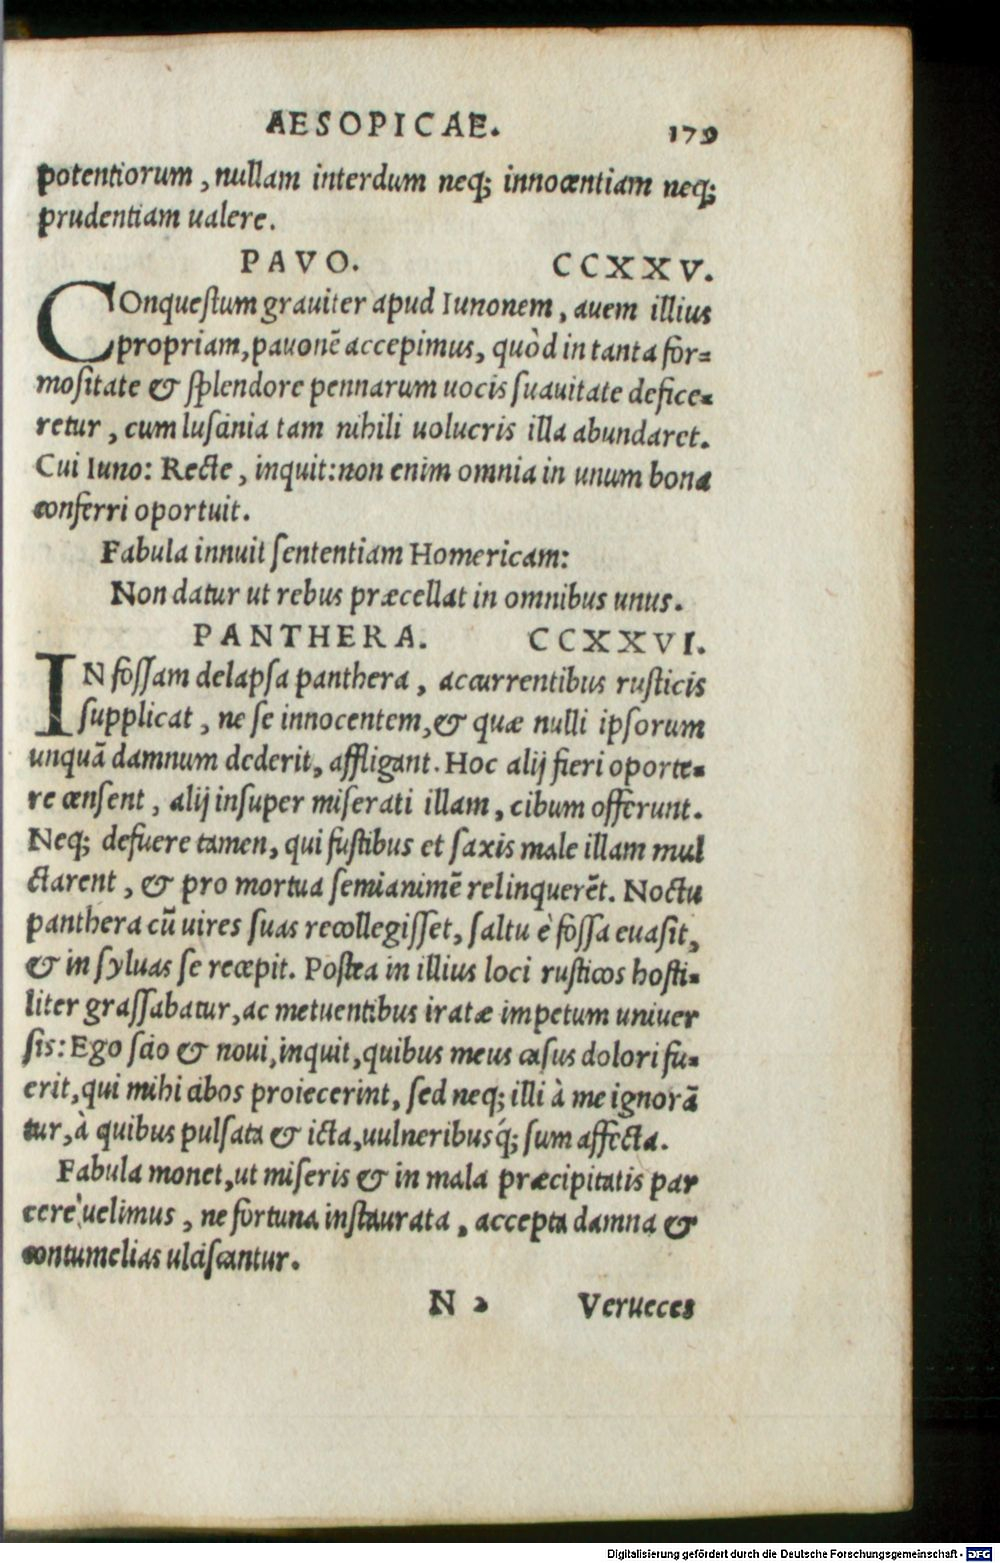 AESOPICAE. 179
potentiorum, nullam interdum neq; innocentiam neq;
prudentiam ualere.
PAVO. CCXXV.
COnquestum grauiter apud Iunonem, auem illius
propriam, pauonẽ accepimus, quòd in tanta for-
mositate & splendore pennarum uocis suauitate defice-
retur, cum luscinia tam nihili uolucris illa abundaret.
Cui Iuno: Recte, inquit: non enim omnia in unum bona
conferri oportuit.
Fabula innuit sententiam Homericam:
Non datur ut rebus præcellat in omnibus unus.
PANTHERA. CCXXVI.
IN fossam delapsa panthera, accurrentibus rusticis
supplicat, ne se innocentem, & quæ nulli ipsorum
unquã damnum dederit, affligant. Hoc alij fieri oporte-
re censent, alij insuper miserati illam, cibum offerunt.
Neq; defuere tamen, qui fustibus et saxis male illam mul
ctarent, & pro mortua semianimẽ relinquerẽt. Noctu
panthera cũ uires suas recollegisset, saltu è fossa euasit,
& in syluas se recepit. Postea in illius loci rusticos hosti-
liter grassabatur, ac metuentibus iratæ impetum uniuer
sis: Ego scio & noui, inquit, quibus meus casus dolori fu-
erit, qui mihi cibos proiecerint, sed neq; illi à me ignorã
tur, à quibus pulsata & icta, uulneribusq́; sum affecta.
Fabula monet, ut miseris & in mala præcipitatis par
cere uelimus, ne fortuna instaurata, accepta damna &
contumelias ulciscantur.
N 2 Verueces
Digitalisierung gefördert durch die Deutsche Forschungsgemeinschaft - DFG